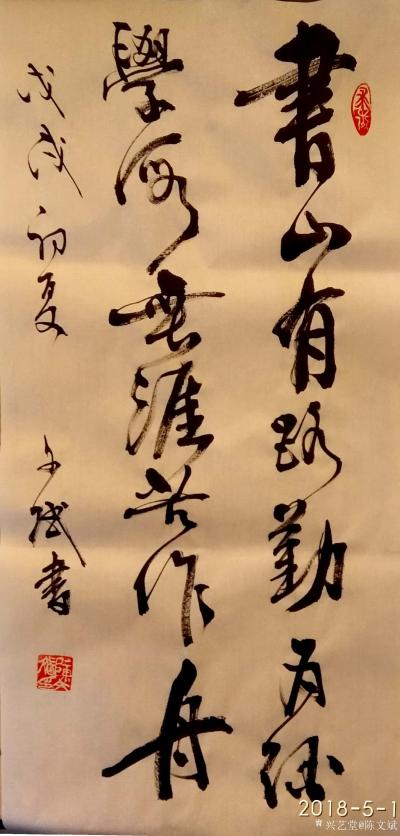 書山有路勤为径
學海無涯苦作舟
戊戌初夏
文斌書
2018-5-1
兴艺堂@陈文斌